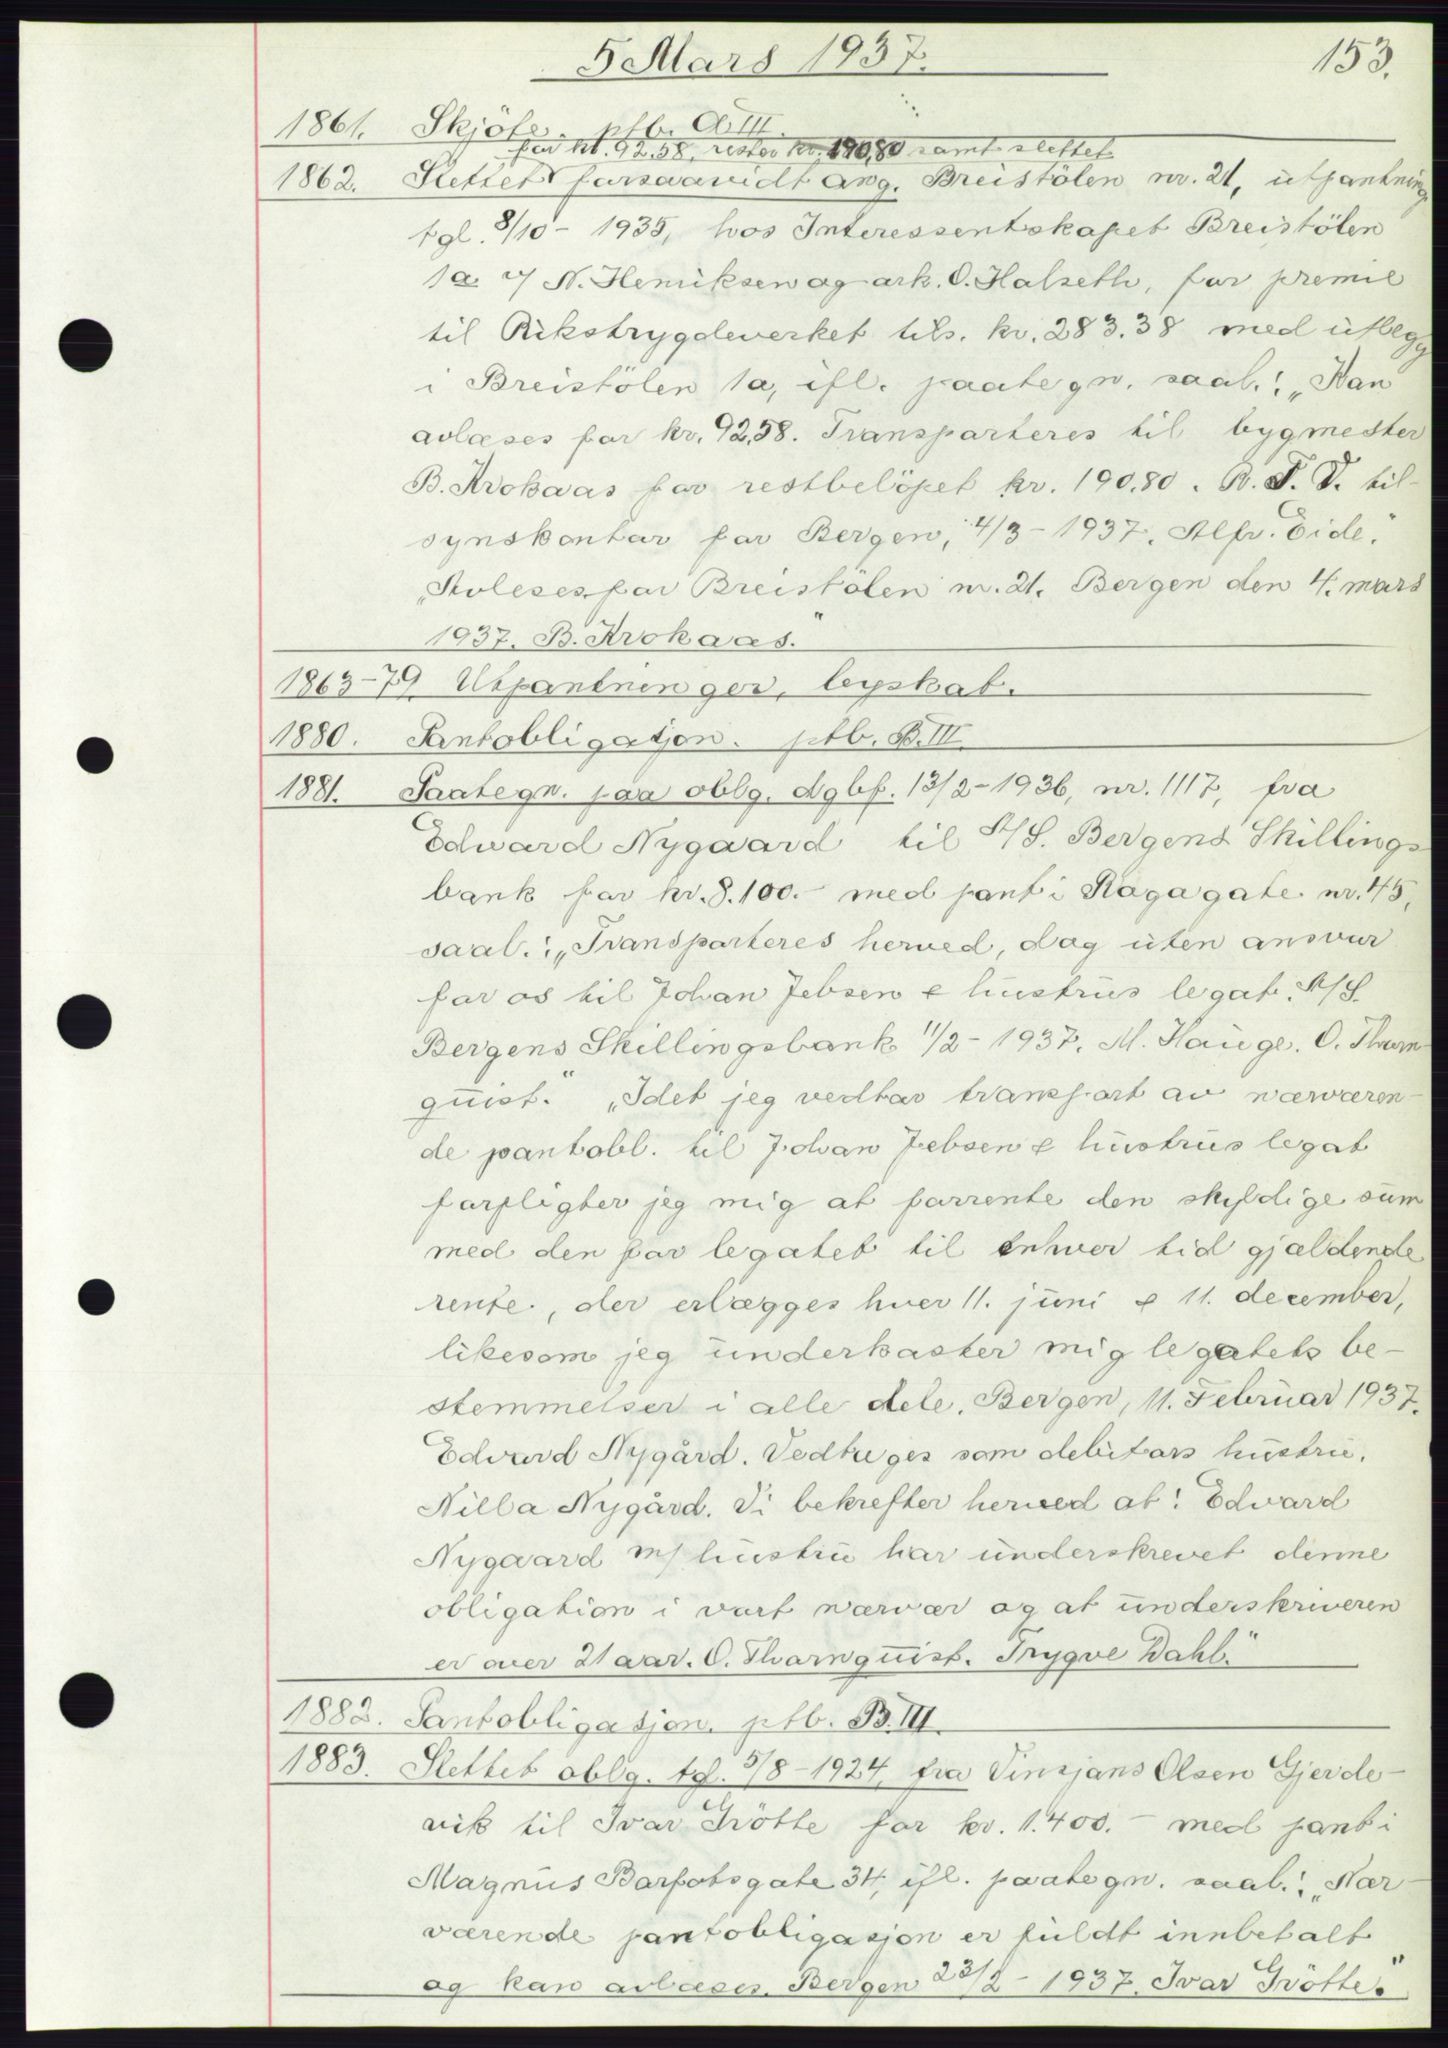 5 Mars 1937.
153.
1861. Skjöte. ptb. A III.
for kr. 92.58, rester kr. 190,80 samt slettet
1862. Slettet forsaavidt ang. Breistölen nr. 21, utpantning
tgl. 8/10 - 1935, hos Interessentskapet Breistölen
1a v/ N. Henriksen og ark. O. Halseth, for premie
til Rikstrygdeverket tils. kr. 283.38 med utlegg
i Breistölen 1a, ifl. paategn. saal.: „Kan
avlæses for kr. 92,58. Transporteres til bygmester
B. Krokaas for restbelöpet kr. 190,80. R.T.V. til-
synskontor for Bergen, 4/3 - 1937. Alfr. Eide."
„Avleses for Breistölen nr. 21. Bergen den 4. mars
1937. B. Krokaas."
1863-79 Utpantninger, legskat.
1880. Pantobligasjon. ptb. B. III.
1881. Paategn. paa oblg. dgbf. 13/2 - 1936, nr. 1117, fra
Edward Nygaard til A/S. Bergens Skillings-
bank for kr. 8.100.- med pant i Kogagate nr. 45,
saal.: „Transporteres herved, dog uten ansvar
for os til Johan Jebsen & hustrus legat. A/S.
Bergens Skillingsbank 11/2 - 1937. M. Hauge. O. Thorn-
quist." „Idet jeg vedtar transport av nærværen-
de pantobl. til Johan Jebsen & hustrus legat
forpligter jeg mig at forrente den skyldige sum
med den for legatet til enhver tid gjældende
rente, der erlægges hver 11. juni & 11. december,
likesom jeg underkaster mig legatets be-
stemmelser i alle dele. Bergen, 11. Februar 1937.
Edvard Nygård. Vedtages som debitors hustru.
Nilla Nygård. Vi bekrefter herved at: Edward
Nygaard m/ hustru har underskrevet denne
obligation i vort nærvær og at underskriveren
er over 21 aar. O. Thornquist. Trygve Dahl."
1882. Pantobligasjon. ptb. B. III.
1883. Slettet oblg. tgl. 5/8 - 1924, fra Vinsjans Olsen Gjerde-
vik til Ivar Trötte for kr. 1.400.- med pant i
Magnus Barfotsgate 34, ifl. paategn. saal.: „Nær-
værende pantobligasjon er fuldt innbetalt
og kan avlæses. Bergen 23/2 - 1937. Ivar Trötte."